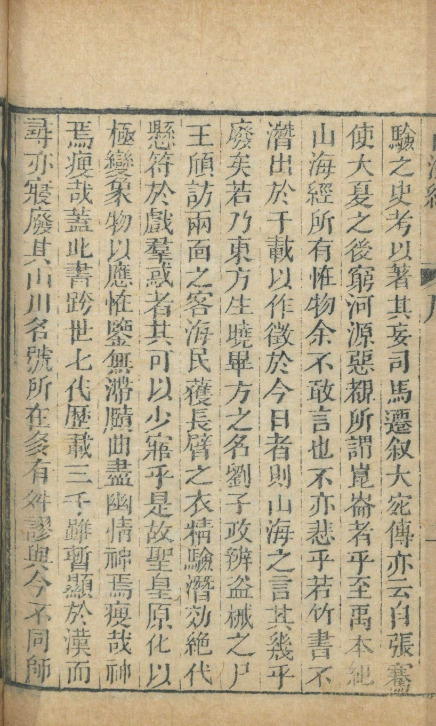 山海經 序
驗之史考以著其妄司馬遷叙大宛傳亦云自張騫
使大夏之後窮河源惡覩所謂崑崙者乎至禹本紀
山海經所有怪物余不敢言也不亦悲乎若竹書不
潛出於千載以作徵於今日者則山海之言其幾乎
廢矣若乃東方生曉畢方之名劉子政辨盗械之尸
王頎訪兩面之客海民獲長臂之衣精驗潛効絶代
懸符於戲羣惑者其可以少寤乎是故聖皇原化以
極變象物以應怪鑒無滯賾曲盡幽情神焉廋哉神
焉廋哉蓋此書跨世七代歴載三千雖暫顯於漢而
尋亦寢廢其山川名號所在多有舛謬與今不同師